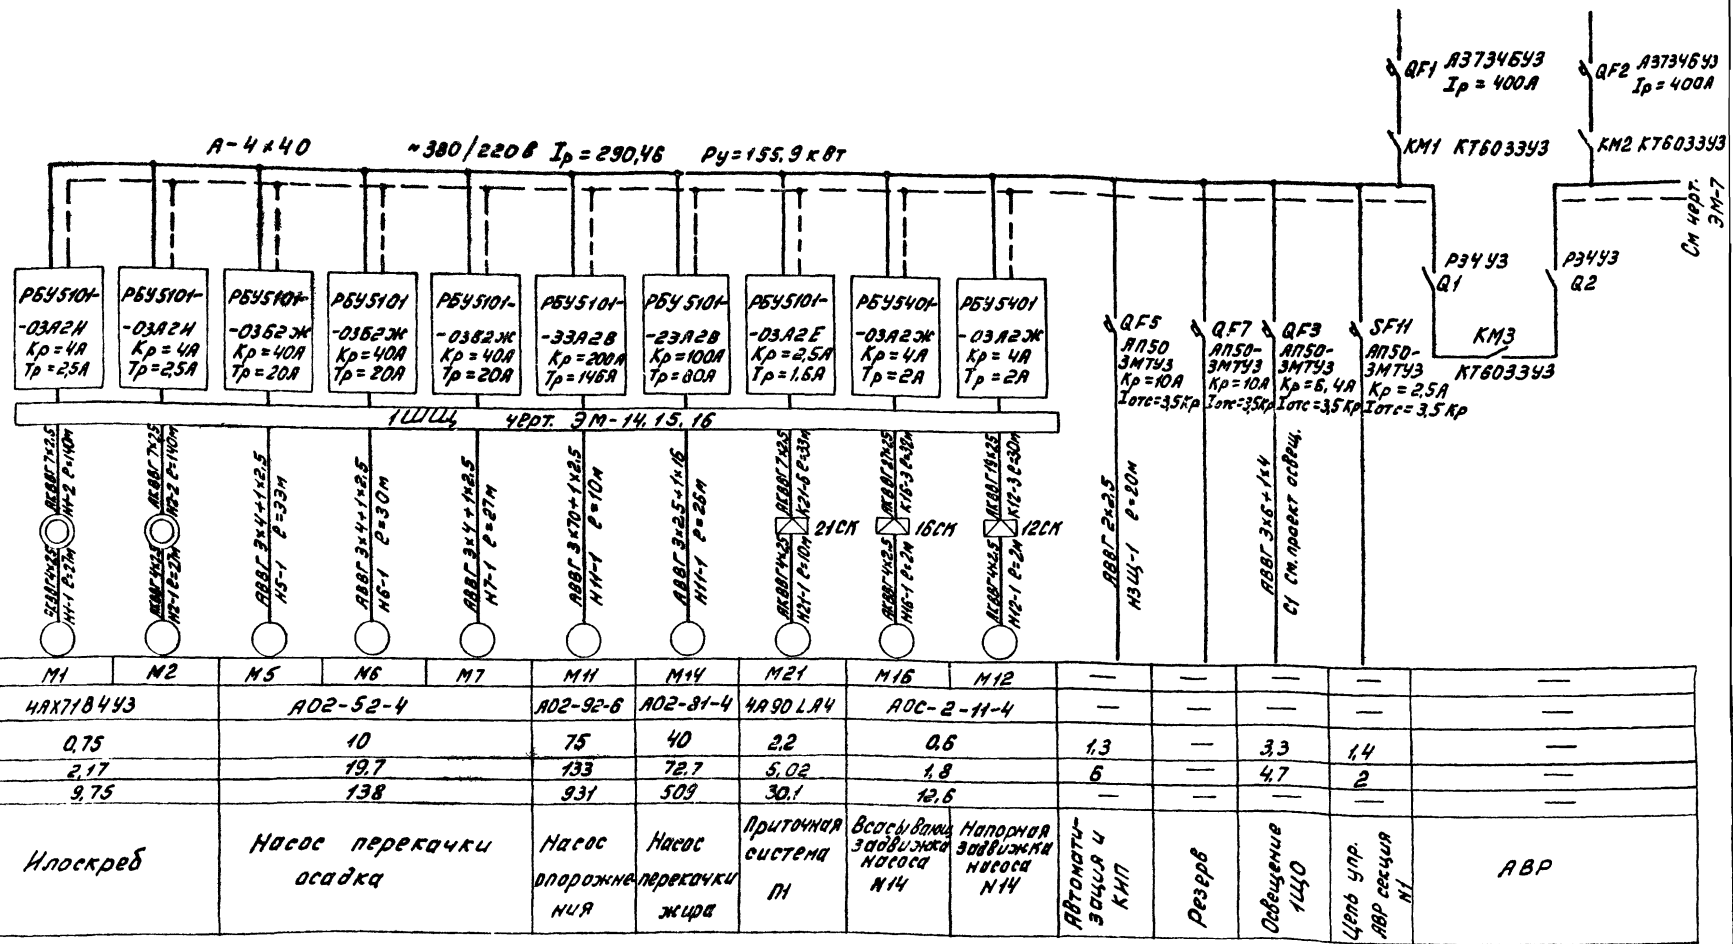 QF1 А3734БУ3
Iр = 400А
QF2 А3734БУ3
Iр = 400А
КМ1 КТ6033У3
КМ2 КТ6033У3
А-4х40 ~380/220в Iр=290,46 Ру=155,9 кВт
См черт.
ЭМ-7
РЭ4У3
Q1
РЭ4У3
Q2
КМ3
КТ6033У3
РБУ5101-
-03А2Н
Кр=4А
Тр=2,5А
РБУ5101-
-03А2Н
Кр=4А
Тр=2,5А
РБУ5101-
-03Б2Ж
Кр=40А
Тр=20А
РБУ5101
-03Б2Ж
Кр=40А
Тр=20А
РБУ5101-
-03Б2Ж
Кр=40А
Тр=20А
РБУ5101-
-33А2В
Кр=200А
Тр=146А
РБУ5101-
-23А2В
Кр=100А
Тр=80А
РБУ5101-
-03А2Е
Кр=2,5А
Тр=1,6А
РБУ5401-
-03А2Ж
Кр=4А
Тр=2А
РБУ5401
-03А2Ж
Кр=4А
Тр=2А
QF5
АП50
3МТУ3
Кр=10А
Iотс=3,5Кр
QF7
АП50-
3МТУ3
Кр=10А
Iотс=3,5Кр
QF3
АП50-
3МТУ3
Кр=6,4А
Iотс=3,5Кр
SF11
АП50-
3МТУ3
Кр=2,5А
Iотс=3,5Кр
1ШЩ черт. ЭМ-14,15,16
АКВВГ 7х2,5
Н1-2 ℓ=140м
АКВВГ 7х2,5
Н2-2 ℓ=140м
АКВВГ4х2,5
Н1-1 ℓ=27м
АКВВГ4х2,5
Н2-1 ℓ=27м
АВВГ 3х4+1х2,5
Н5-1 ℓ=33м
АВВГ 3х4+1х2,5
Н6-1 ℓ=30м
АВВГ 3х4+1х2,5
Н7-1 ℓ=27м
АВВГ 3х70+1х2,5
Н11-1 ℓ=10м
АВВГ 3х2,5+1х16
Н11-1 ℓ=26м
АКВВГ 7х2,5
К21-6 ℓ=33м
21СК
АКВВГ4х2,5
Н21-1 ℓ=10м
АКВВГ27х2,5
К16-3 ℓ=32м
16СК
АКВВГ4х2,5
Н16-1 ℓ=2м
АКВВГ19х2,5
К12-3 ℓ=30м
12СК
АКВВГ4х2,5
Н12-1 ℓ=2м
АВВГ 2х2,5
Н3Щ-1 ℓ=20м
АВВГ 3х6+1х4
С1 см. проект освещ.
М1 М2 М5 М6 М7 М11 М14 М21 М16 М12 — — — — —
4АХ71В4У3 АО2-52-4 АО2-92-6 АО2-81-4 4А90LА4 АОС-2-11-4 — — — — —
0,75 10 75 40 2,2 0,6 1,3 — 3,3 1,4 —
2,17 19,7 133 72,7 5,02 1,8 6 — 4,7 2 —
9,75 138 931 509 30,1 12,6 — — — — —
Илоскреб
Насос перекачки
осадка
Насос
опорожне-
ния
Насос
перекачки
жира
Приточная
система
П1
Всасывающ
задвижка
насоса
N14
Напорная
задвижка
насоса
N14
Автомати-
зация и
КИП
Резерв
Освещение
1ЩО
Цепь упр.
АВР секция
N1
АВР